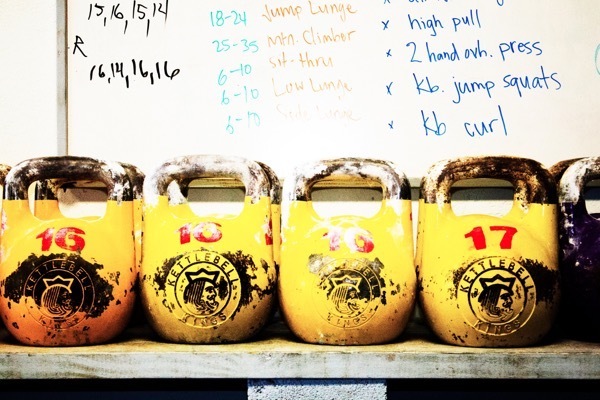 15, 16, 15, 14
R
16, 14, 16, 16
18-24 Jump Lunge
25-35 Mtn. Climber
6-10 sit-thru
6-10 Low Lunge
6-10 Side Lunge
x high pull
x 2 hand ovh. press
x kb. jump squats
x kb curl
16
16
16
17
KETTLEBELL KINGS
KETTLEBELL KINGS
KINGS
KETTLEBELL KINGS